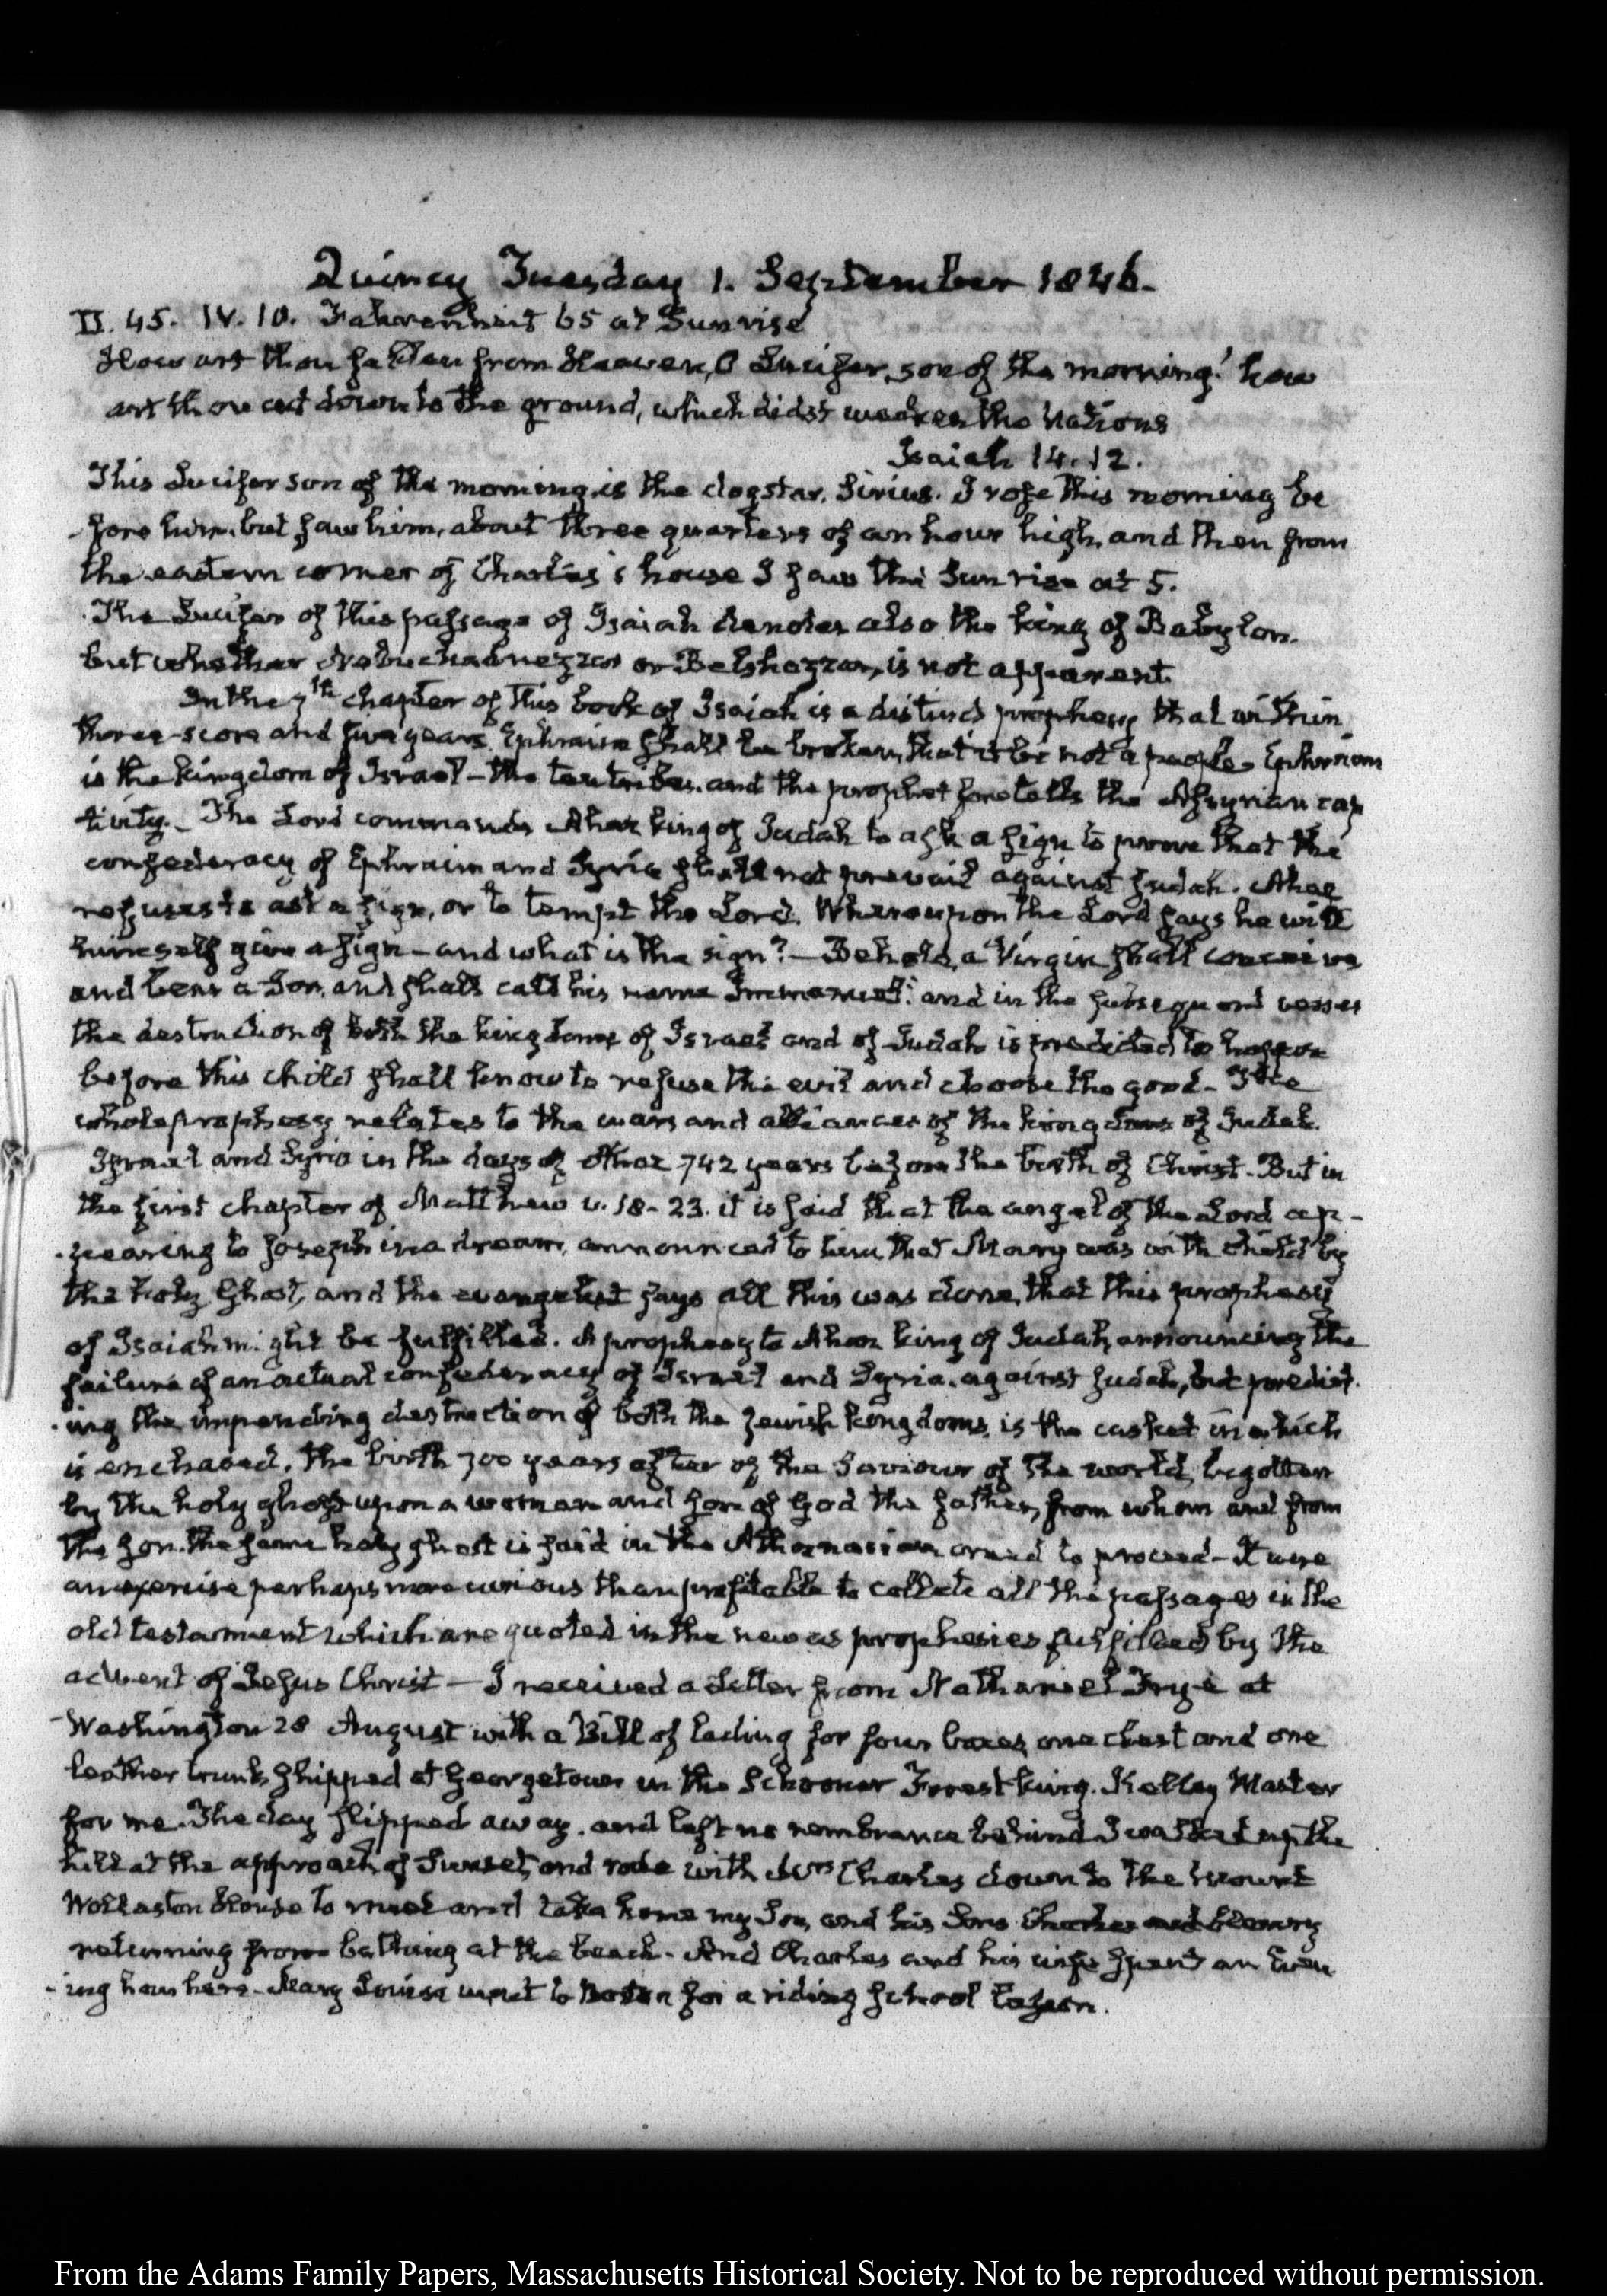 Quincy Tuesday 1. September 1846.
II. 45. IV. 10. Fahrenheit 65 at Sunrise
How art thou fallen from Heaven, O Lucifer, son of the morning! how
art thou cut down to the ground, which didst weaken the Nations
Isaiah 14. 12.
This Lucifer son of the morning is the dogstar, Sirius. I rose this morning be
-fore him, but saw him, about three quarters of an hour high, and then from
the eastern corner of Charles's house I saw the Sun rise at 5.
The Lucifer of this passage of Isaiah denotes also the king of Babylon.
but whether Nebuchadnezzar or Belshazzar, is not apparent.
In the 7th chapter of this book of Isaiah is a distinct prophesy that within
three-score and five years Ephraim shall be broken, that it be not a people. Ephraim
is the kingdom of Israel - the ten tribes. and the prophet foretells the Assyrian cap
tivity. - The Lord commands Ahaz king of Judah to ask a sign to prove that the
confederacy of Ephraim and Syria shall not prevail against Judah. Ahaz
refuses to ask a sign, or to tempt the Lord. Whereupon the Lord says he will
himself give a sign - and what is the sign? - Behold, a Virgin shall conceive
and bear a Son, and shall call his name Immanuel: and in the subsequent verses
the destruction of both the kingdoms of Israel and of Judah is predicted to happen
before this child shall know to refuse the evil and choose the good - The
whole prophesy relates to the wars and alliances of the kingdoms of Judah.
Israel and Syria in the days of Ahaz 742 years before the birth of Christ. But in
the first chapter of Matthew v. 18-23. it is said that the angel of the Lord ap-
-pearing to Joseph in a dream, announced to him that Mary was with child by
the holy Ghost, and the evangelist says all this was done, that this prophesy
of Isaiah might be fulfilled. A prophesy to Ahaz king of Judah, announcing the
failure of an actual confederacy of Israel and Syria, against Judah, but predict-
-ing the impending destruction of both the Jewish kingdoms, is the casket in which
is enchased, the birth 700 years after of the Saviour of the world, begotten
by the holy ghost upon a woman and son of God the father, from whom and from
the son. the same holy ghost is said in the Athanasian creed to proceed - It were
an exercise perhaps more curious than profitable to collate all the passages in the
old testament which are quoted in the new as prophesies fulfilled by the
advent of Jesus Christ - I received a Letter from Nathaniel Frye at
Washington 28 August with a Bill of lading for four boxes one chest and one
leather trunk shipped at Georgetown in the Schooner Forrest king. Kelley Master
for me. The day slipped away. and left no rembrance behind I walked up the
hill at the approach of Sunset, and rode with Mrs Charles down to the Mount
Wollaston House to meet and take home my Son, and his Sons
returning from bathing at the beach. And Charles and his wife spent an Even
-ing hour here. Mary Louisa went to Boston for a riding school lesson.
From the Adams Family Papers, Massachusetts Historical Society. Not to be reproduced without permission.